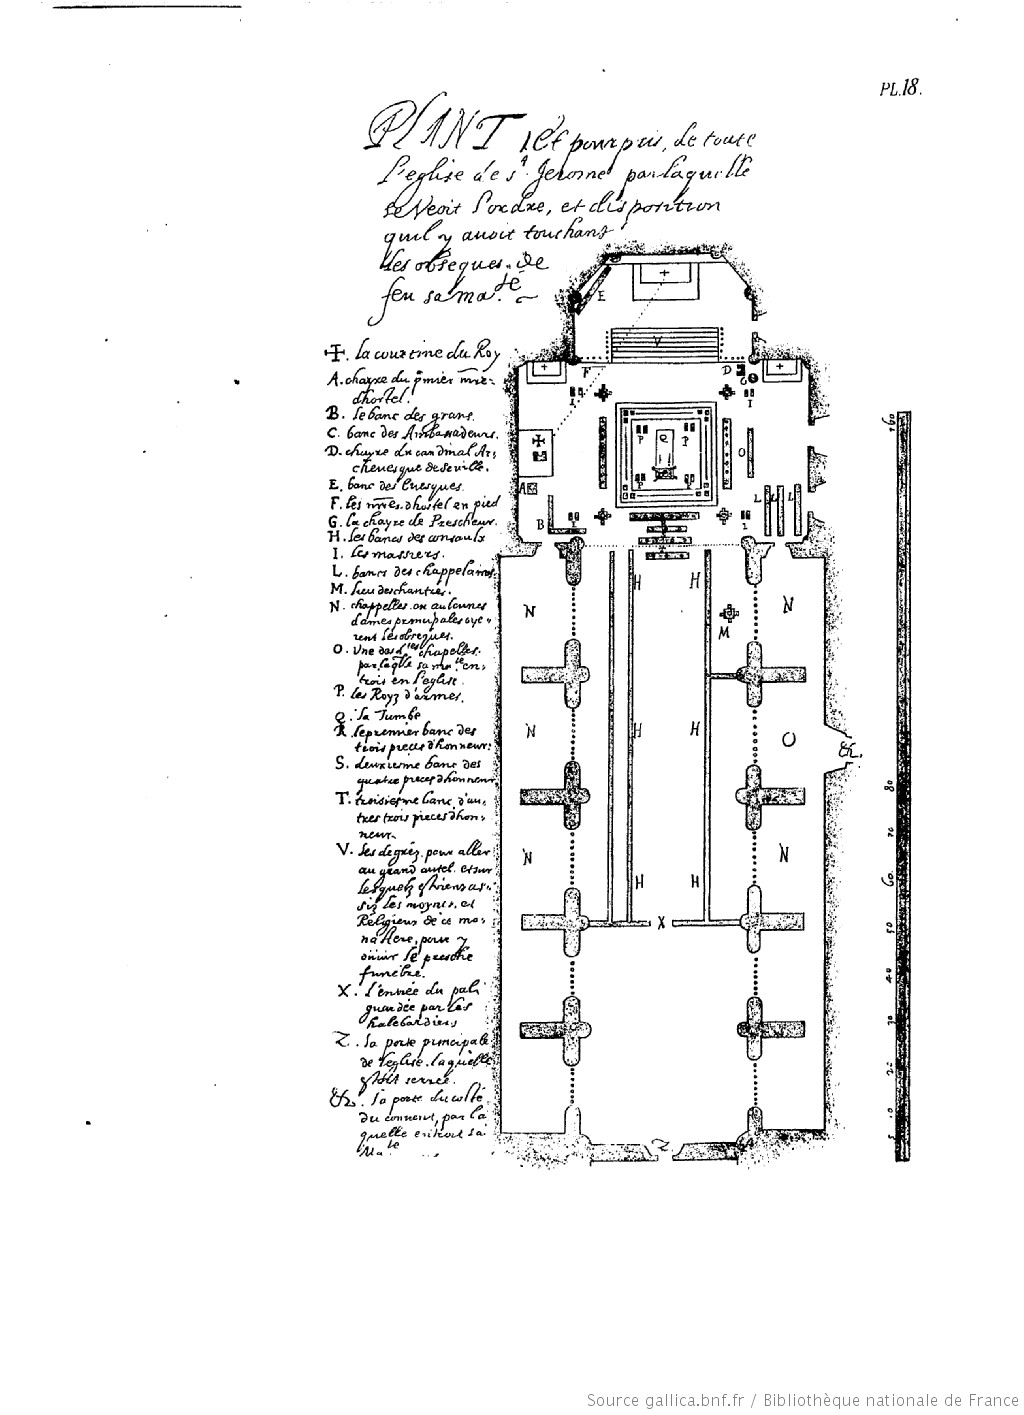 PL.18.
PLANT et pourpris, de toute
l'eglise de st. Jerome par laquelle
se veoit l'ordre, et disposition
quil y avoit touchant
les obseques. de
feu sa ma.te
✠. la courtine du Roy
A. chayre du pmier me
d'hostel.
B. le banc des grans.
C. banc des Ambassadeurs.
D. chayre du cardinal Ar:
chevesque de Seville.
E. banc des Evesques.
F. les mes. d'hostel en pied
G. la chayre de Prescheur.
H. les bancs des consaulx
I. les massiers.
L. bancs des chappelains
M. lieu des chantres.
N. chappelles. ou aulcunes
dames principales oye
rent les obseques.
O. une desd.tes chapelles.
par laqlle sa ma.te en:
trois en l'eglise.
P. les Royz d'armes.
Q. la Tumbe
R. le premier banc des
trois pieces d'honneur:
S. deuxiesme banc des
quatre pieces d'honneur
T. troisiesme banc d'au:
tres trois pieces d'hon:
neur.
V. les degrez. pour aller
au grand autel. et sur
lesquelz estoient as:
siz les moynes. et
Religieux de ce mo:
nastere, pour y
ouuir le presche
funebre.
X. l'entrée du pali
guardée par les
halebardiers
Z. la porte principale
de l'eglise. laquelle
estoit serrée.
&. la porte du costé
du convent, par la
quelle entroit sa
Ma.te
E
V
F
D
G
I
I
P
Q
P
O
P
P
A
L
L
L
B
I
I
H
H
N
N
M
N
H
H
O
&.
N
H
H
N
X
Z
100
80
70
60.
50
40
30
20
10
5
Source gallica.bnf.fr / Bibliothèque nationale de France